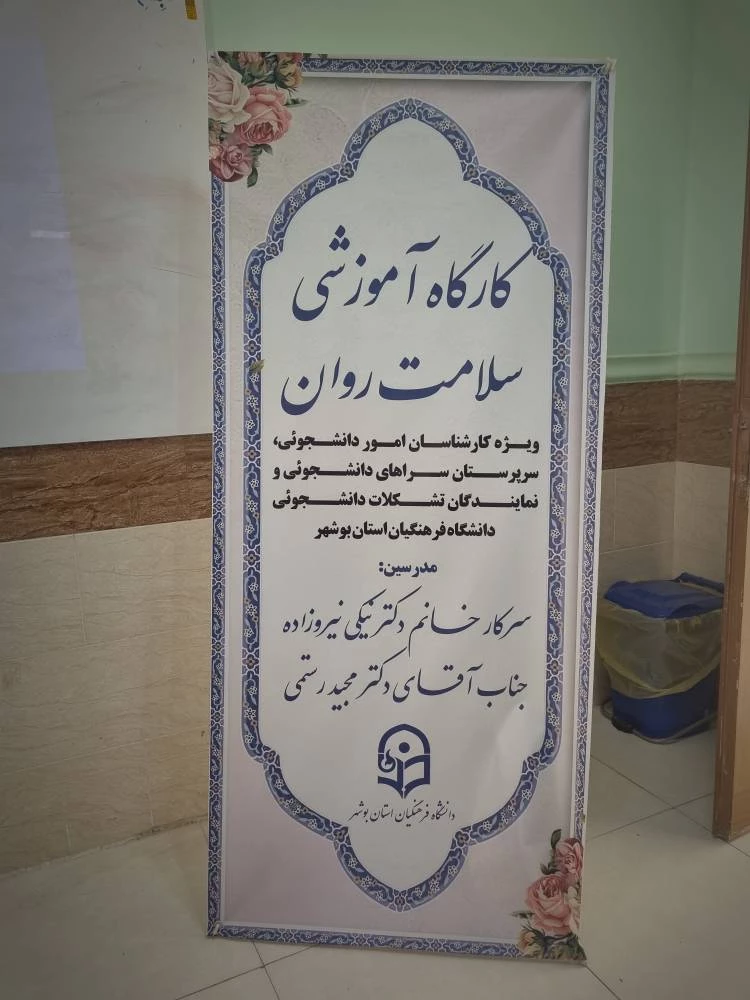 کارگاه آموزشی
سلامت روان
ویژه کارشناسان امور دانشجوئی،
سرپرستان سراهای دانشجوئی و
نمایندگان تشکلات دانشجوئی
دانشگاه فرهنگیان استان بوشهر
مدرسین:
سرکار خانم دکتر نیکی نیروزاده
جناب آقای دکتر مجید رستمی
دانشگاه فرهنگیان استان بوشهر